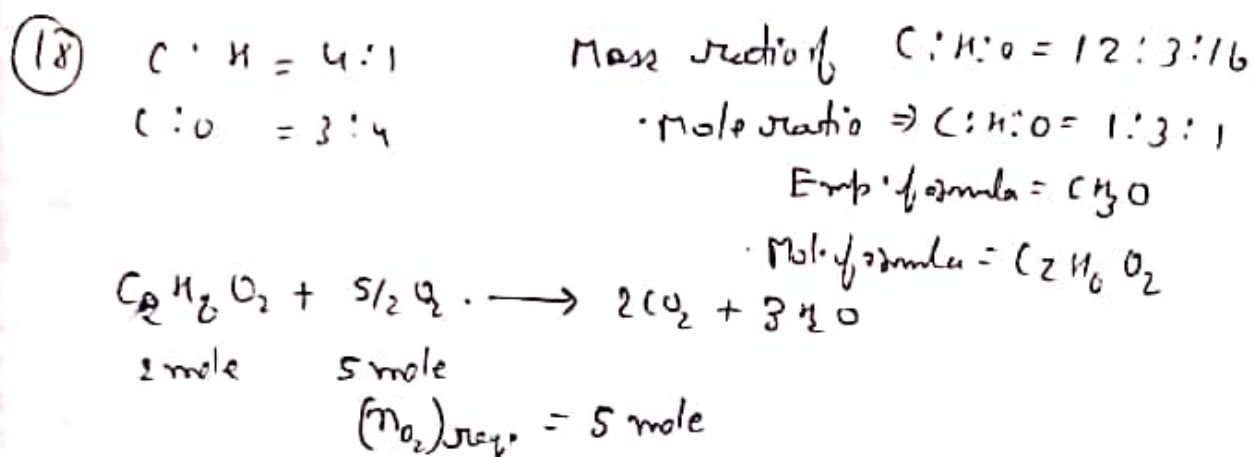 (18) C : H = 4:1 Mass ratio of C:H:O = 12:3:16
C:O = 3:4 . Mole ratio ⇒ C:H:O = 1:3:1
Emp. formula = CH3O
. Mol. formula = C2H6O2
C2H6O2 + 5/2 O2 . ⟶ 2CO2 + 3H2O
2 mole 5 mole
(nO2)req. = 5 mole